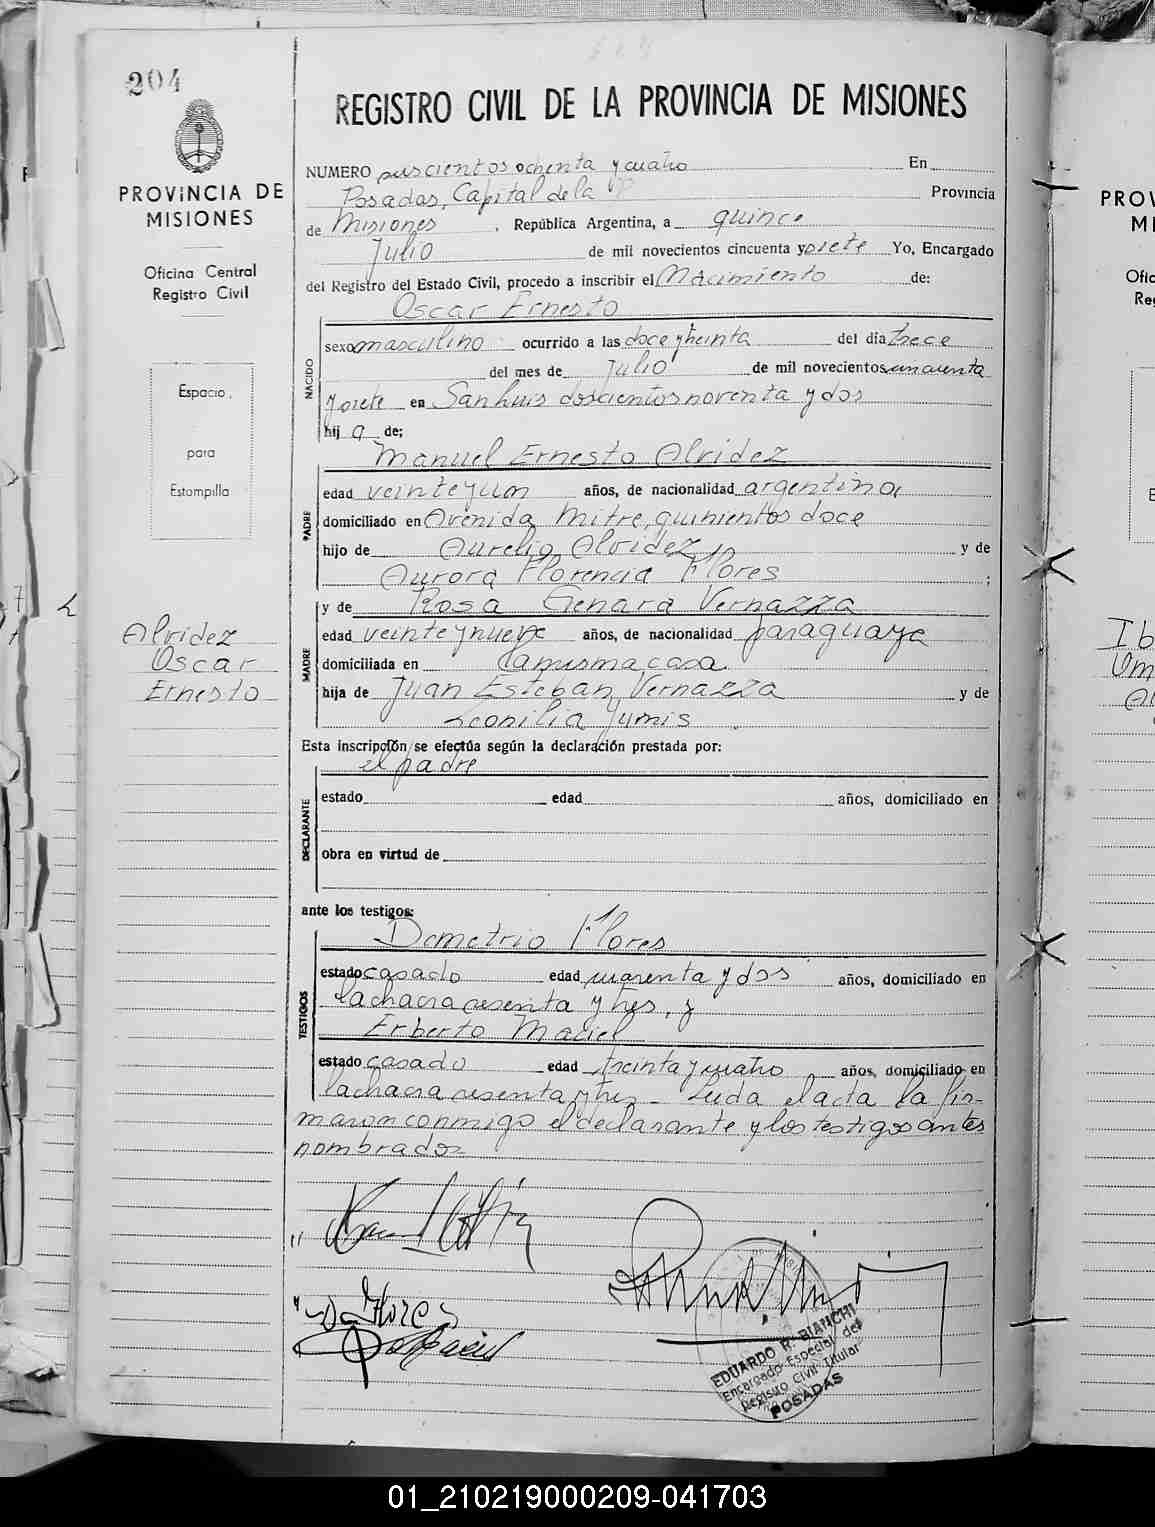 204
PROVINCIA DE
MISIONES
Oficina Central
Registro Civil
Espacio
para
Estampilla
Alvidez
Oscar
Ernesto
REGISTRO CIVIL DE LA PROVINCIA DE MISIONES
NUMERO ochenta y cuatro En
Posadas, Capital de la Provincia
de Misiones, República Argentina, a quince
Julio de mil novecientos cincuenta y siete Yo, Encargado
del Registro del Estado Civil, procedo a inscribir el Nacimiento de:
Oscar Ernesto
NACIDO
sexo masculino ocurrido a las doce y treinta del día trece
del mes de Julio de mil novecientos cincuenta
y siete en San Luis doscientos noventa y dos
hij o de;
Manuel Ernesto Alvidez
PADRE
edad veinte y un años, de nacionalidad argentina
domiciliado en Avenida Mitre, quinientos doce
hijo de Aurelio Alvidez y de
Aurora Florencia Flores ;
y de Rosa Genara Vernazza
MADRE
edad veinte y nueve años, de nacionalidad paraguaya
domiciliada en la misma casa
hija de Juan Esteban Vernazza y de
Leonilia Yumis
Esta inscripción se efectúa según la declaración prestada por:
el padre
DECLARANTE
estado edad años, domiciliado en
obra en virtud de
ante los testigos:
Demetrio Flores
TESTIGOS
estado casado edad cuarenta y dos años, domiciliado en
la chacra sesenta y tres, y
Erberto Maciel
estado casado edad treinta y cuatro años, domiciliado en
la chacra sesenta y tres - Leida el acta la fir-
maron conmigo el declarante y los testigos antes
nombrados
D. Flores
EDUARDO R. BIANCHI
Encargado Especial del
Registro Civil Titular
POSADAS
PROV
MI
Ofic
Re
E
Ib
01_210219000209-041703